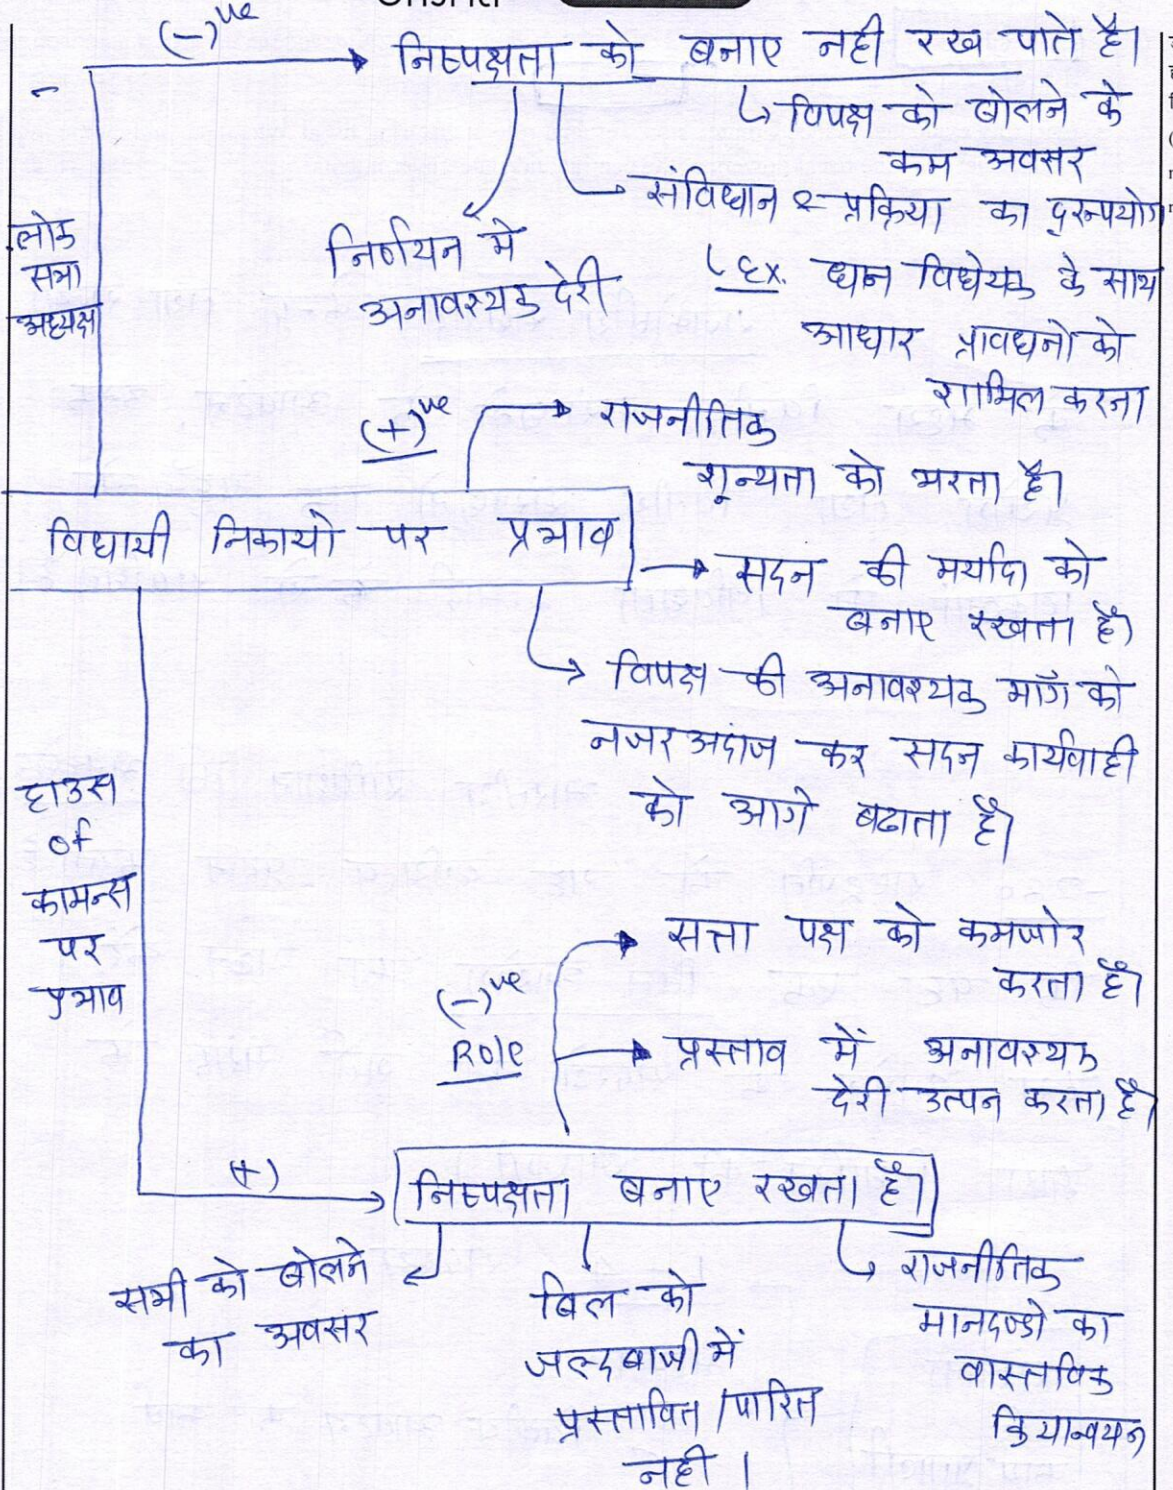 (-)ve
निष्पक्षता को बनाए नही रख पाते है।
विपक्ष को बोलने के
कम अवसर
संविधान & प्रक्रिया का दुरूपयोग
Ex. धन विधेयक के साथ
आधार प्रावधनो को
शामिल करना
निर्णयन मे
अनावश्यक देरी
लोक
सभा
अध्यक्ष
(+)ve
राजनीतिक
शून्यता को भरता है।
विधायी निकायो पर प्रभाव
सदन की मर्यादा को
बनाए रखता है।
विपक्ष की अनावश्यक माँग को
नजर अंदाज कर सदन कार्यवाही
को आगे बढाता है।
हाउस
of
कामन्स
पर
प्रभाव
(-)ve
Role
सत्ता पक्ष को कमजोर
करता है।
प्रस्ताव में अनावश्यक
देरी उत्पन करता है।
(+)
निष्पक्षता बनाए रखता है।
सभी को बोलने
का अवसर
बिल को
जल्दबाजी में
प्रस्तावित / पारित
नही ।
राजनीतिक
मानदण्डो का
वास्तविक
क्रियान्वयन